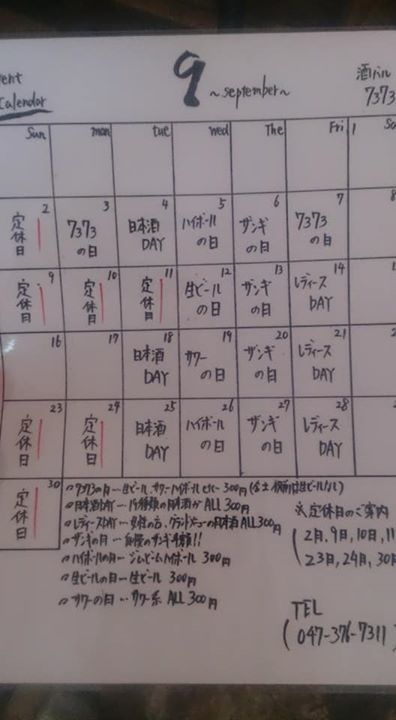 ent
Calendar
9
~september~
酒バル
7373
Sun mon tue wed The Fri
2 定休日
3 7373の日
4 日本酒DAY
5 ハイボールの日
6 ザンギの日
7 7373の日
8
9 定休日
10 定休日
11 定休日
12 生ビールの日
13 ザンギの日
14 レディースDAY
16
17
18 日本酒DAY
19 サワーの日
20 ザンギの日
21 レディースDAY
23 定休日
24 定休日
25 日本酒DAY
26 ハイボールの日
27 ザンギの日
28 レディースDAY
30 定休日
7373の日…生ビール、サワー、ハイボール 300円
日本酒DAY… 種類の日本酒が ALL 300円
レディースDAY… 女性の方、グランドメニューの日本酒 ALL 300円
ザンギの日… ザンギ半額!!
ハイボールの日…ジムビームハイボール 300円
生ビールの日…生ビール 300円
サワーの日…サワー系 ALL 300円
※定休日のご案内
(2日,9日,10日,11
23日,24日,30
TEL
(047-376-7311)